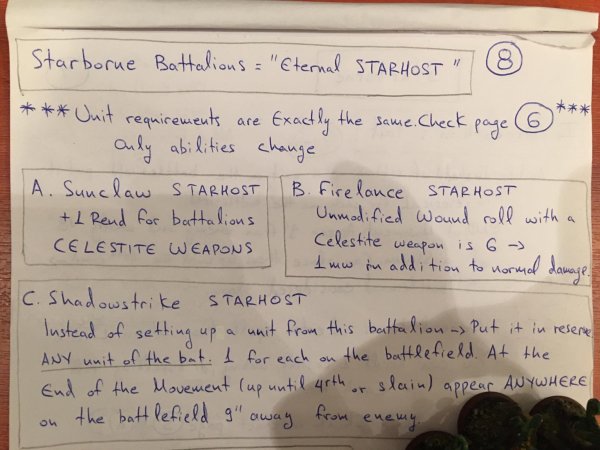 Starborne Battalions = "Eternal STARHOST" 8
*** Unit requirements are Exactly the same. Check page 6 ***
Only abilities change
A. Sunclaw STARHOST
+1 Rend for battalions
CELESTITE WEAPONS
B. Firelance STARHOST
Unmodified Wound roll with a
Celestite weapon is 6 →
1 mw in addition to normal damage.
C. Shadowstrike STARHOST
Instead of setting up a unit from this battalion → Put it in reserve
ANY unit of the bat. 1 for each on the battlefield. At the
End of the Movement (up until 4rth or slain) appear ANYWHERE
on the battlefield 9" away from enemy.